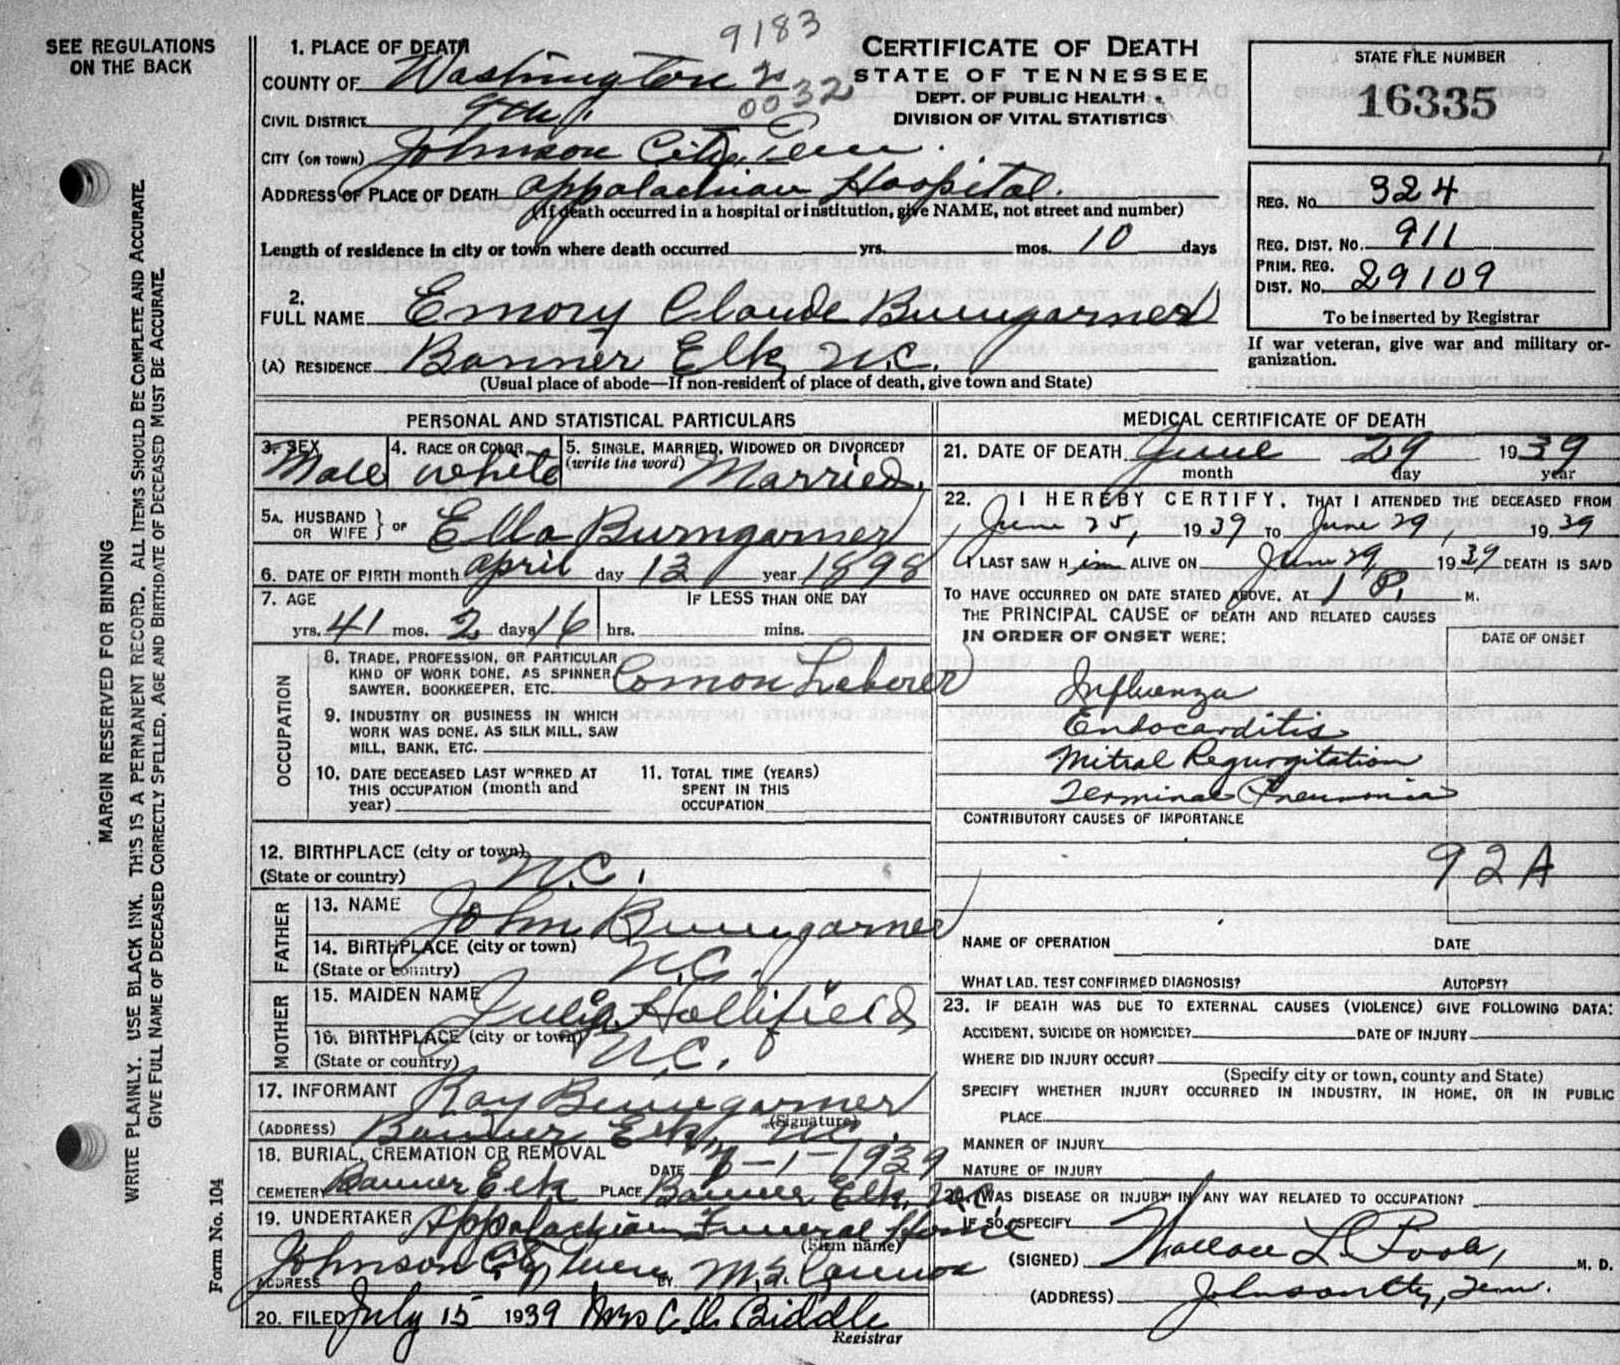 SEE REGULATIONS
ON THE BACK
MARGIN RESERVED FOR BINDING
WRITE PLAINLY. USE BLACK INK. THIS IS A PERMANENT RECORD. ALL ITEMS SHOULD BE COMPLETE AND ACCURATE.
GIVE FULL NAME OF DECEASED CORRECTLY SPELLED. AGE AND BIRTHDATE OF DECEASED MUST BE ACCURATE.
Form No. 104
9183
0032
CERTIFICATE OF DEATH
STATE OF TENNESSEE
DEPT. OF PUBLIC HEALTH
DIVISION OF VITAL STATISTICS
STATE FILE NUMBER
16335
1. PLACE OF DEATH
COUNTY OF Washington
CIVIL DISTRICT 9th
CITY (OR TOWN) Johnson City, Tenn.
ADDRESS OF PLACE OF DEATH Appalachian Hospital.
(If death occurred in a hospital or institution, give NAME, not street and number)
Length of residence in city or town where death occurred yrs. mos. 10 days
REG. NO. 324
REG. DIST. NO. 911
PRIM. REG.
DIST. NO. 29109
To be inserted by Registrar
2.
FULL NAME Emory Claude Bumgarner
(A) RESIDENCE Banner Elk, N.C.
(Usual place of abode—If non-resident of place of death, give town and State)
If war veteran, give war and military or-
ganization.
PERSONAL AND STATISTICAL PARTICULARS
3. SEX
Male
4. RACE OR COLOR
White
5. SINGLE, MARRIED, WIDOWED OR DIVORCED?
(write the word) Married.
5A. HUSBAND OR WIFE } OF Ella Bumgarner
6. DATE OF BIRTH month April day 13 year 1898
7. AGE
yrs. 41 mos. 2 days 16
IF LESS THAN ONE DAY
hrs. mins.
OCCUPATION
8. TRADE, PROFESSION, OR PARTICULAR
KIND OF WORK DONE, AS SPINNER,
SAWYER, BOOKKEEPER, ETC. Comon Laberer
9. INDUSTRY OR BUSINESS IN WHICH
WORK WAS DONE, AS SILK MILL, SAW
MILL, BANK, ETC.
10. DATE DECEASED LAST WORKED AT
THIS OCCUPATION (month and
year)
11. TOTAL TIME (YEARS)
SPENT IN THIS
OCCUPATION
12. BIRTHPLACE (city or town)
(State or country) N.C.
FATHER
13. NAME John Bumgarner
14. BIRTHPLACE (city or town)
(State or country) N.C.
MOTHER
15. MAIDEN NAME Julia Hollifield
16. BIRTHPLACE (city or town)
(State or country) N.C.
17. INFORMANT Ray Bumgarner
(Signature)
(ADDRESS) Banner Elk, N.C.
18. BURIAL, CREMATION OR REMOVAL
DATE 7-1-1939
CEMETERY Banner Elk PLACE Banner Elk, N.C.
19. UNDERTAKER Appalachian Funeral Home
(Firm name)
ADDRESS Johnson City, Tenn. BY M.S.
20. FILED July 15 1939 Mrs C. O. Biddle
Registrar
MEDICAL CERTIFICATE OF DEATH
21. DATE OF DEATH June 29 1939
month day year
22. I HEREBY CERTIFY, THAT I ATTENDED THE DECEASED FROM
June 25, 1939 TO June 29, 1939
I LAST SAW H im ALIVE ON June 29, 1939 DEATH IS SAID
TO HAVE OCCURRED ON DATE STATED ABOVE, AT 1 P. M.
THE PRINCIPAL CAUSE OF DEATH AND RELATED CAUSES
IN ORDER OF ONSET WERE:
DATE OF ONSET
Influenza
Endocarditis
Mitral Regurgitation
Terminal Pneumonia
CONTRIBUTORY CAUSES OF IMPORTANCE
92A
NAME OF OPERATION DATE
WHAT LAB. TEST CONFIRMED DIAGNOSIS? AUTOPSY?
23. IF DEATH WAS DUE TO EXTERNAL CAUSES (VIOLENCE) GIVE FOLLOWING DATA:
ACCIDENT, SUICIDE OR HOMICIDE? DATE OF INJURY
WHERE DID INJURY OCCUR?
(Specify city or town, county and State)
SPECIFY WHETHER INJURY OCCURRED IN INDUSTRY, IN HOME, OR IN PUBLIC
PLACE
MANNER OF INJURY
NATURE OF INJURY
24. WAS DISEASE OR INJURY IN ANY WAY RELATED TO OCCUPATION?
IF SO, SPECIFY
(SIGNED) Wallace L. Poole, M. D.
(ADDRESS) Johnson City, Tenn.